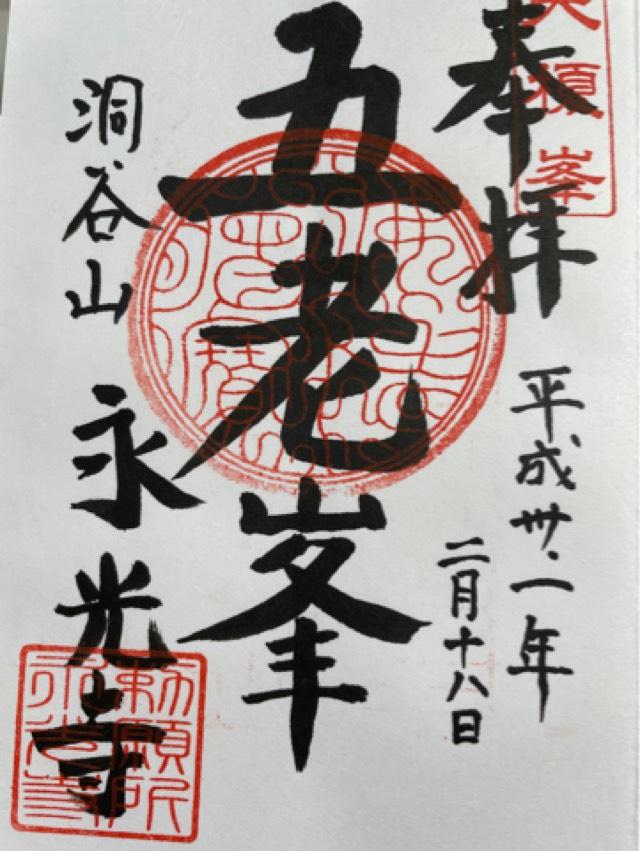 奉拝
平成卅一年
二月十八日
五老峯
洞谷山 永光寺
勅願所
永光寺